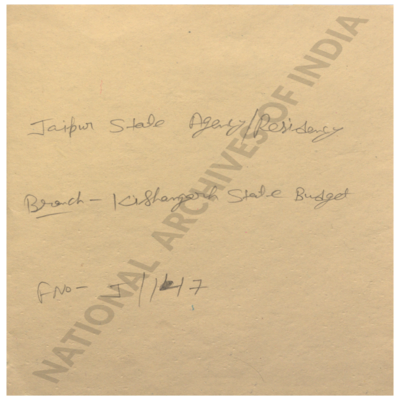 Jaipur State Agency/Residency
Branch - Kishangarh State Budget
F No -
NATIONAL ARCHIVES OF INDIA